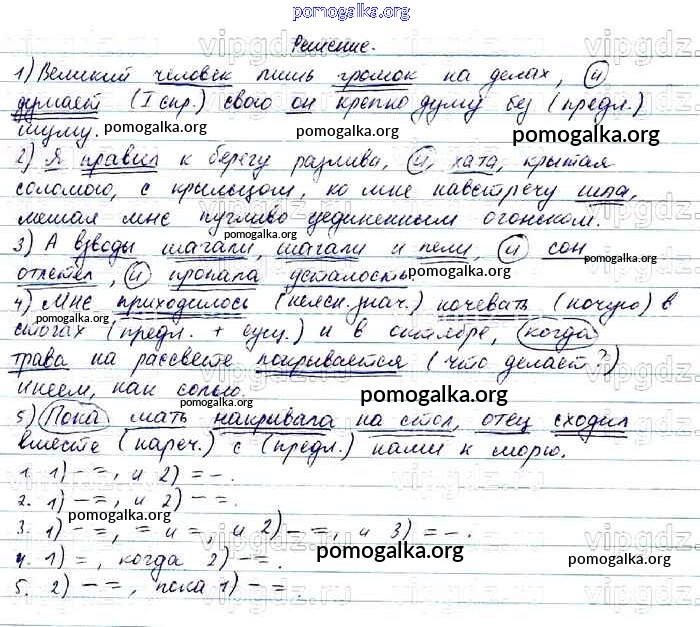 pomogalka.org
Решение.
1) Великий человек лишь громок на делах, и
думает (I спр.) свою он крепко думу без (предл.)
шуму.
pomogalka.org
pomogalka.org
2) Я правил к берегу разлива, и, хата, крытая
соломою, с крыльцом, ко мне навстречу шла,
мешая мне пугливо уединенным огоньком.
pomogalka.org
3) А взводы шагали, шагали и пели, и сон
отлетел, и пропала усталость.
pomogalka.org
4) Мне приходилось (неясн. знач.) ночевать (ночую) в
стогах (предл. + сущ.) и в октябре, когда
трава на рассвете покрывается (что делает?)
инеем, как солью.
pomogalka.org
pomogalka.org
5) Пока мать накрывала на стол, отец сходил
вместе (нареч.) с (предл.) нами к морю.
1. 1) - =, и 2) = -.
2. 1) - =, и 2) - =.
pomogalka.org
3. 1) - =, = и =, и 2) - =, и 3) = -.
4. 1) =, когда 2) - =.
pomogalka.org
pomogalka.org
5. 2) - =, пока 1) - =.
pomogalka.org